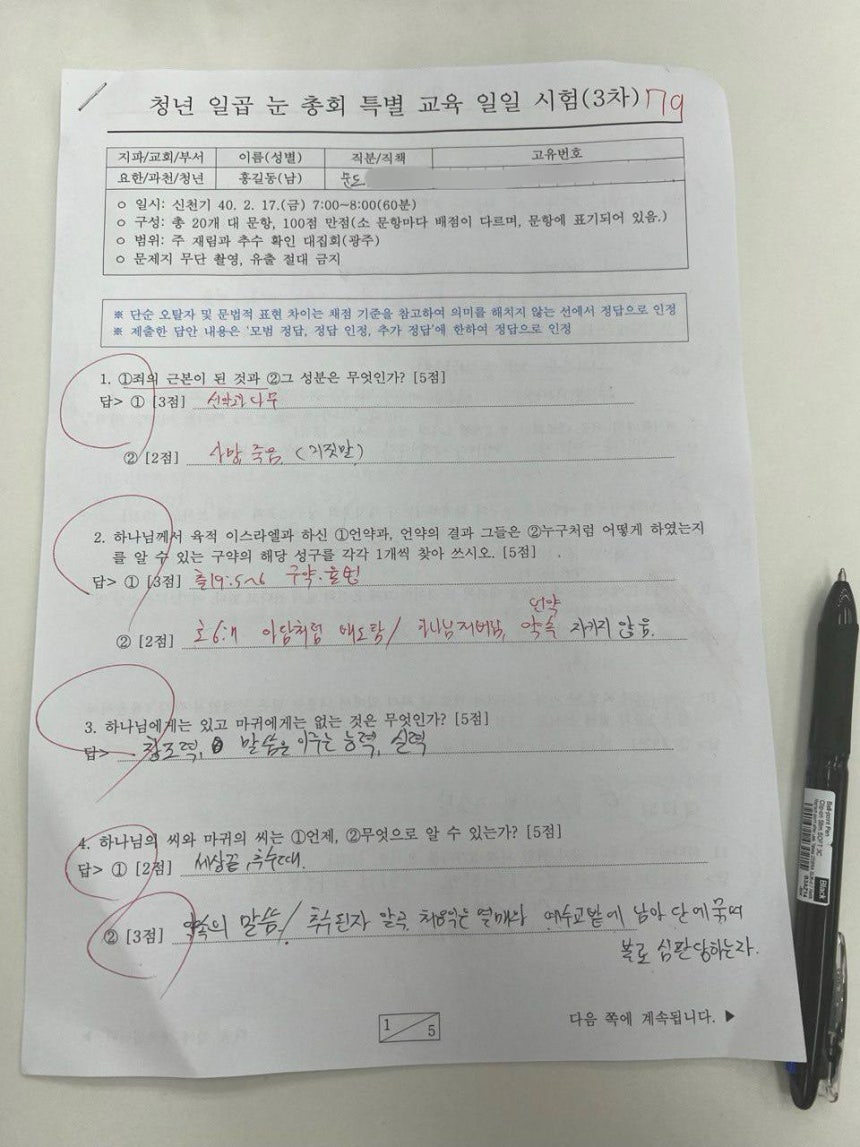 청년 일곱 눈 총회 특별 교육 일일 시험(3차) 79
지파/교회/부서 이름(성별) 직분/직책 고유번호
요한/과천/청년 홍길동(남) 문도
○ 일시: 신천기 40. 2. 17.(금) 7:00~8:00(60분)
○ 구성: 총 20개 대 문항, 100점 만점(소 문항마다 배점이 다르며, 문항에 표기되어 있음.)
○ 범위: 주 재림과 추수 확인 대집회(광주)
○ 문제지 무단 촬영, 유출 절대 금지
※ 단순 오탈자 및 문법적 표현 차이는 채점 기준을 참고하여 의미를 해치지 않는 선에서 정답으로 인정
※ 제출한 답안 내용은 '모범 정답, 정답 인정, 추가 정답'에 한하여 정답으로 인정
1. ①죄의 근본이 된 것과 ②그 성분은 무엇인가? [5점]
답> ① [3점] 선악과 나무
② [2점] 사망, 죽음. (거짓말)
2. 하나님께서 육적 이스라엘과 하신 ①언약과, 언약의 결과 그들은 ②누구처럼 어떻게 하였는지
를 알 수 있는 구약의 해당 성구를 각각 1개씩 찾아 쓰시오. [5점]
답> ① [3점] 출19:5~6 구약·율법
언약
② [2점] 호6:7 아담처럼 배도함/ 하나님 저버림, 약속 지키지 않음.
3. 하나님에게는 있고 마귀에게는 없는 것은 무엇인가? [5점]
답> 창조력, 말씀을 이루는 능력, 실력
4. 하나님의 씨와 마귀의 씨는 ①언제, ②무엇으로 알 수 있는가? [5점]
답> ① [2점] 세상끝, 추수때.
② [3점] 약속의 말씀/ 추수된자 알곡, 처음익은 열매와 예수교밭에 남아 단에 묶여
불로 심판당하는자.
1 / 5
다음 쪽에 계속됩니다. ▶
Ball-point Pen
Black